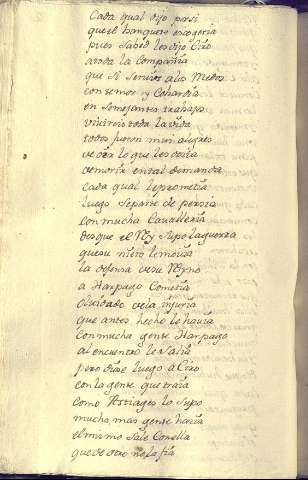 Cada qual dijo por si
que el banquete escogeria
pues sabed les dijo Ciro
a toda la Compañia
que si servis a los Medos
con temor y Cobardia
en semejantes trabajos
vivireis toda la vida
todos fueron mui alegres
de oir lo que les decia
de morir en tal demanda
cada qual le prometia
luego se parte de persia
con mucha Cavalleria
desque el Rey supo la guerra
que su nieto le movia
la defensa de su Reyno
a Harpago Cometia
olvidado de la injuria
que antes hecho le havia
Con mucha gente Harpago
al encuentro le salia
pero diose luego a Ciro
con la gente que traia
como Astiages lo supo
mucha mas gente hacia
el mismo sale Con ella
que de otro no la fia